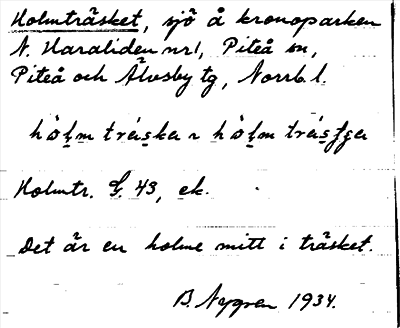 Holmträsket, sjö å kronoparken
N. Haraliden nr 1, Piteå sn,
Piteå och Älvsby tg, Norrb. l.
hòlm tráska
Holmtr. G. 43, ek.
Det är en holme mitt i träsket.
B. Nygren 1934.